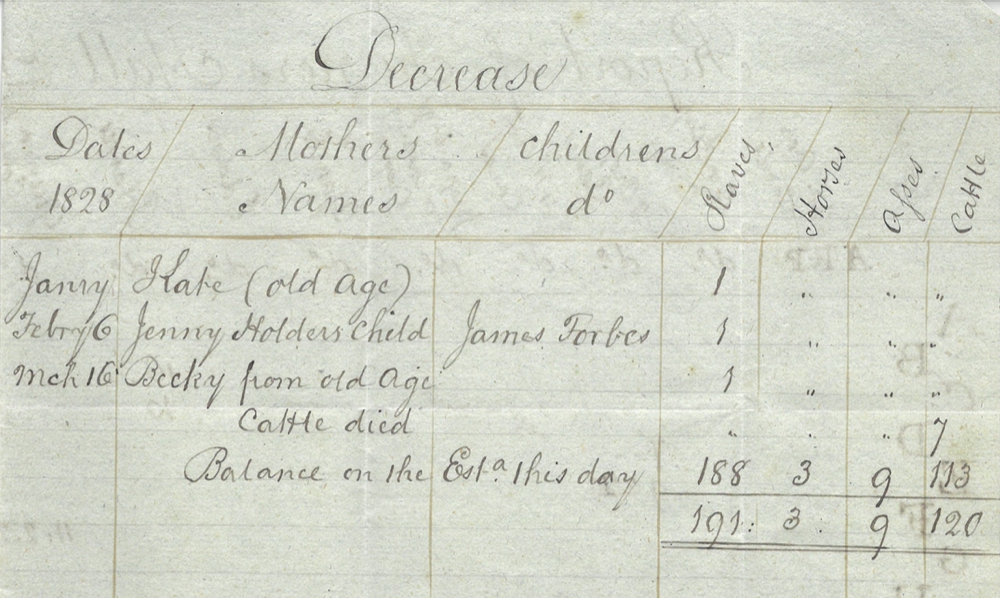 Decrease
Dates Mothers childrens Slaves, Horses Asses Cattle
1828 Names do
Janry Kate (old Age) 1 " " "
Febry 6 Jenny Holders Child James Forbes 1 " " "
Mch 16 Becky from old Age 1 " " "
Cattle died " " " 7
Balance on the Esta. this day 188 3 9 113
191: 3. 9 120